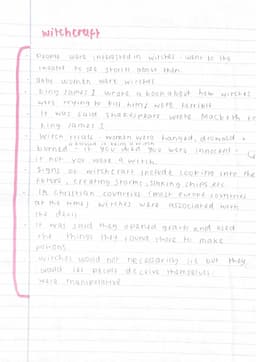 witchcraft
- People were interested in witches - went to the
theatre to see shows about them.
- Only women were witches
- King James I wrote a book about how witches
were trying to kill him & were terrible
- It was said Shakespeare wrote Macbeth
King James I
- Witch trials - women were hanged, drowned +
burned - if you died you were innocent -
if not you were a witch.
- Signs of witchcraft include looking into the
future, creating storms, sinking ships etc
- In christian countries (most europe countries
at the time) witches were associated with
the devil
- It was said they opened graves and used
the things they found there to make
poisons
- witches would not necessarily lie but they
would let people deceive themselves.
- were manipulative